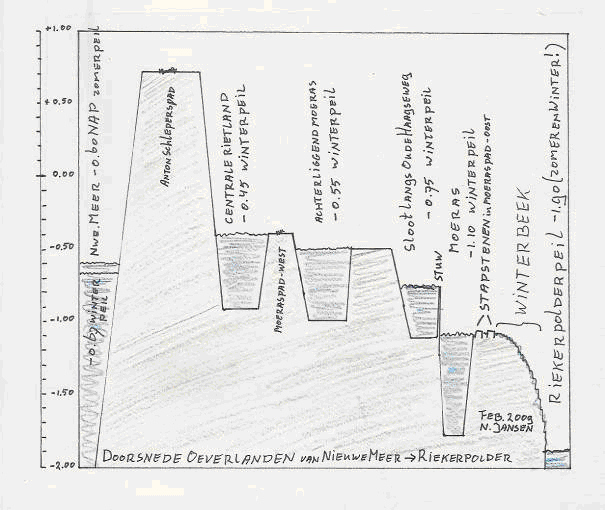 +1.00
+0.50
0.00
-0.50
-1.00
-1.50
-2.00
NWE. MEER -0.60 NAP ZOMERPEIL
-0.67 WINTER
PEIL
ANTON SCHLEPERSPAD
CENTRALE RIETLAND
-0.45 WINTERPEIL
MOERASPAD-WEST
ACHTERLIGGEND MOERAS
-0.55 WINTERPEIL
SLOOT LANGS OUDE HAAGSEWEG
-0.75 WINTERPEIL
STUW
MOERAS
-1.10 WINTERPEIL
STAPSTENEN in MOERASPAD-OOST
WINTERBEEK
RIEKERPOLDERPEIL -1.90 (ZOMER EN WINTER!)
FEB. 2009
N. JANSEN
DOORSNEDE OEVERLANDEN VAN NIEUWE MEER → RIEKERPOLDER